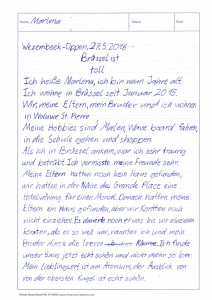 Name: Marlena
Wezembeek-Oppem, 27.5.2016
Brüssel ist
toll
Ich heiße Marlena, ich bin neun Jahre alt.
Ich wohne in Brüssel seit Januar 2015.
Wir, meine Eltern, mein Bruder und ich wohnen
in Woluwe St. Pierre
Meine Hobbies sind Malen, Wave board fahren,
in die Schule gehen und shoppen.
Als ich in Brüssel ankam, war ich sehr traurig
und betrübt. Ich vermisste meine Freunde sehr.
Meine Eltern hatten noch kein Haus gefunden,
wir hatten in der Nähe des Grande Place eine
Hotelwohnung für einen Monat. Danach hatten meine
Eltern ein Haus gefunden, aber wir konnten noch
nicht einziehen. Es dauerte noch etwas bis wir einziehen
konnten, als es so weit war, rannten ich und mein
Bruder durch die leeren Räume. Ich finde
unser Haus jetzt echt schön und nicht mehr so leer.
Mein Lieblingsort ist am Atomium, der Ausblick von
von der obersten Kugel ist echt schön.